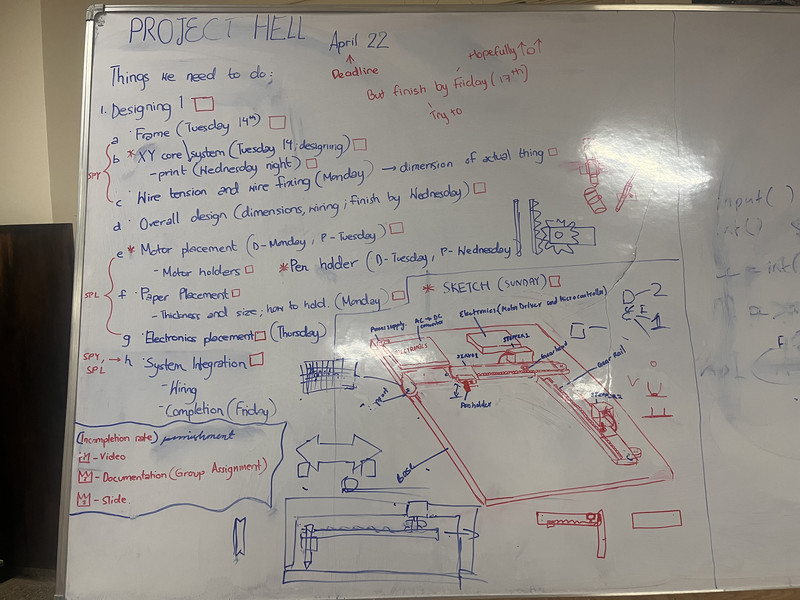 PROJECT HELL
April 22
Deadline
Hopefully
But finish by Friday (17th)
Try to
Things we need to do;
1. Designing 1
a Frame (Tuesday 14th)
b * XY core system (Tuesday 14, designing)
- print (Wednesday night)
SPY
c Wire tension and wire fixing (Monday) → dimension of actual thing
d Overall design (dimensions, wiring; finish by Wednesday)
e * Motor placement (D-Monday, P-Tuesday)
- Motor holders
* Pen holder (D-Tuesday, P-Wednesday
SPL
f Paper Placement
- Thickness and size; how to hold. (Monday)
g Electronics placement (Thursday)
SPY, SPL → h System Integration
- Wiring
- Completion (Friday)
(Incompletion rate) punishment
- Video
- Documentation (Group Assignment)
- Slide.
* SKETCH (SUNDAY)
Power supply
AC → DC converter
Electronics (Motor Driver and Microcontroller)
SERVO1
STEPPER1
Gear Rail
STEPPER2
Penholder
Base
D-2
1
input( )
int( )
= int(